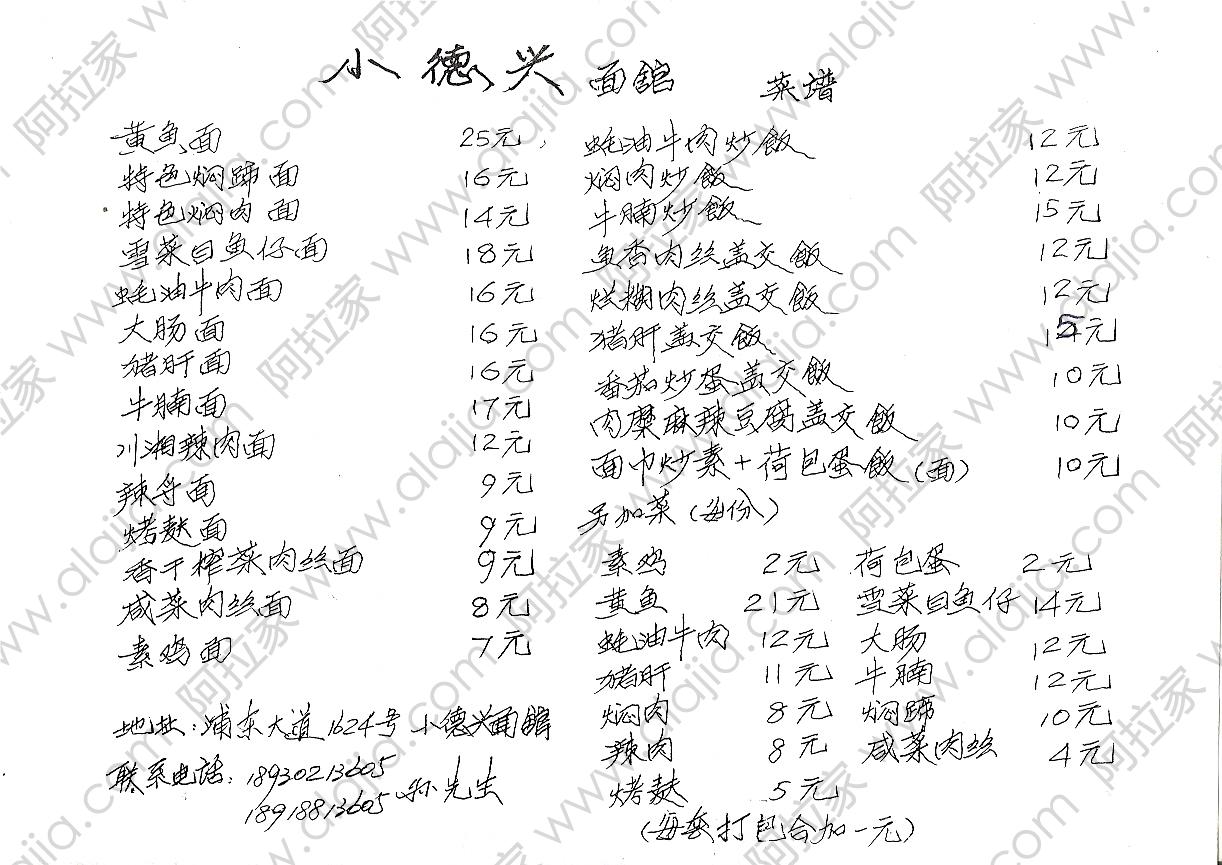 小德兴面馆 菜谱
黄鱼面 25元
特色焖蹄面 16元
特色焖肉面 14元
雪菜白鱼仔面 18元
蚝油牛肉面 16元
大肠面 16元
猪肝面 16元
牛腩面 17元
川湘辣肉面 12元
面 9元
烤麸面 9元
香干榨菜肉丝面 9元
咸菜肉丝面 8元
素鸡面 7元
地址:浦东大道1624号 小德兴面馆
联系电话:18930213605
18918813605 孙先生
蚝油牛肉炒飯 12元
焖肉炒飯 12元
牛腩炒飯 15元
鱼香肉丝盖交飯 12元
烘糊肉丝盖交飯 12元
猪肝盖交飯 15元
番茄炒蛋盖交飯 10元
肉糜麻辣豆腐盖交飯 10元
面巾炒素+荷包蛋飯(面) 10元
另加菜(每份)
素鸡 2元 荷包蛋 2元
黄鱼 21元 雪菜白鱼仔 14元
蚝油牛肉 12元 大肠 12元
猪肝 11元 牛腩 12元
焖肉 8元 焖蹄 10元
辣肉 8元 咸菜肉丝 4元
烤麸 5元
(每套打包合加一元)
阿拉家 www.alajia.com